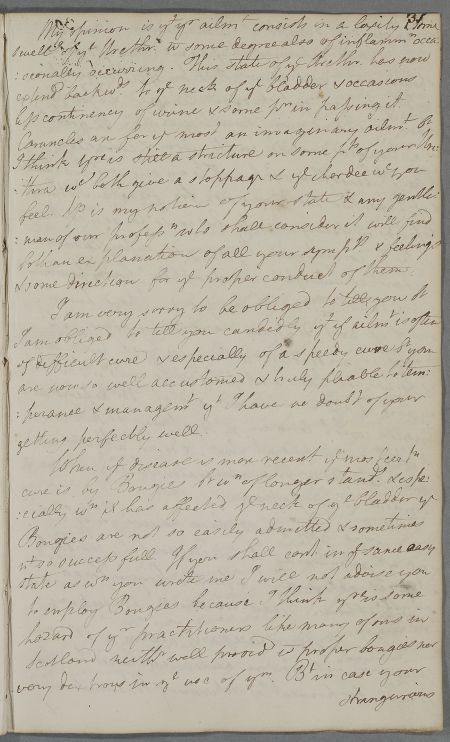 My opinion is yt yr ailmt consists in a laxity & some
swellg of yt Urethra w some degree also of inflammn occa
:sionally occurring. This state of ye Urethr. has now
extend backwds to ye neck of ye bladder & occasions
less continency of urine & some pn in passing it.
Caruncles are for ye most an imaginary ailmt Bt
I think yre is still a stricture on some pt of your Ure
:thra wc both give a stoppage & ye chordee wc you
feel. Ys is my notion of your state & any gentle:
:man of our professn who shall consider it will find
both an explanation of all your sympts & feelings
& some direction for ye proper conduct of them.
I am very sorry to be obliged to tell you Bt
I am obliged to tell you candidly yt ys ailmt is often
of difficult cure & especially of a speedy cure Bt you
are now so well accustomed & truly pliable to tem:
:perance & managemt yt I have no doubt of your
getting perfectly well.
When ys disease is more recent ye most certn
cure is by Bougies Bt wn of longer standg & espe:
:cially wn it has affected ye neck of ye bladder ye
Bougies are not so easily admitted & sometimes
nt so successfull. If you shall cont in ye same easy
state as wn you wrote me I will not advise you
to employ Bougies because I think yre is some
hazard of yr practitioners like many of ours in
Scotland neithr well provid w proper bougies nor
very dextrous in ye use of ym. Bt in case your
strangurious